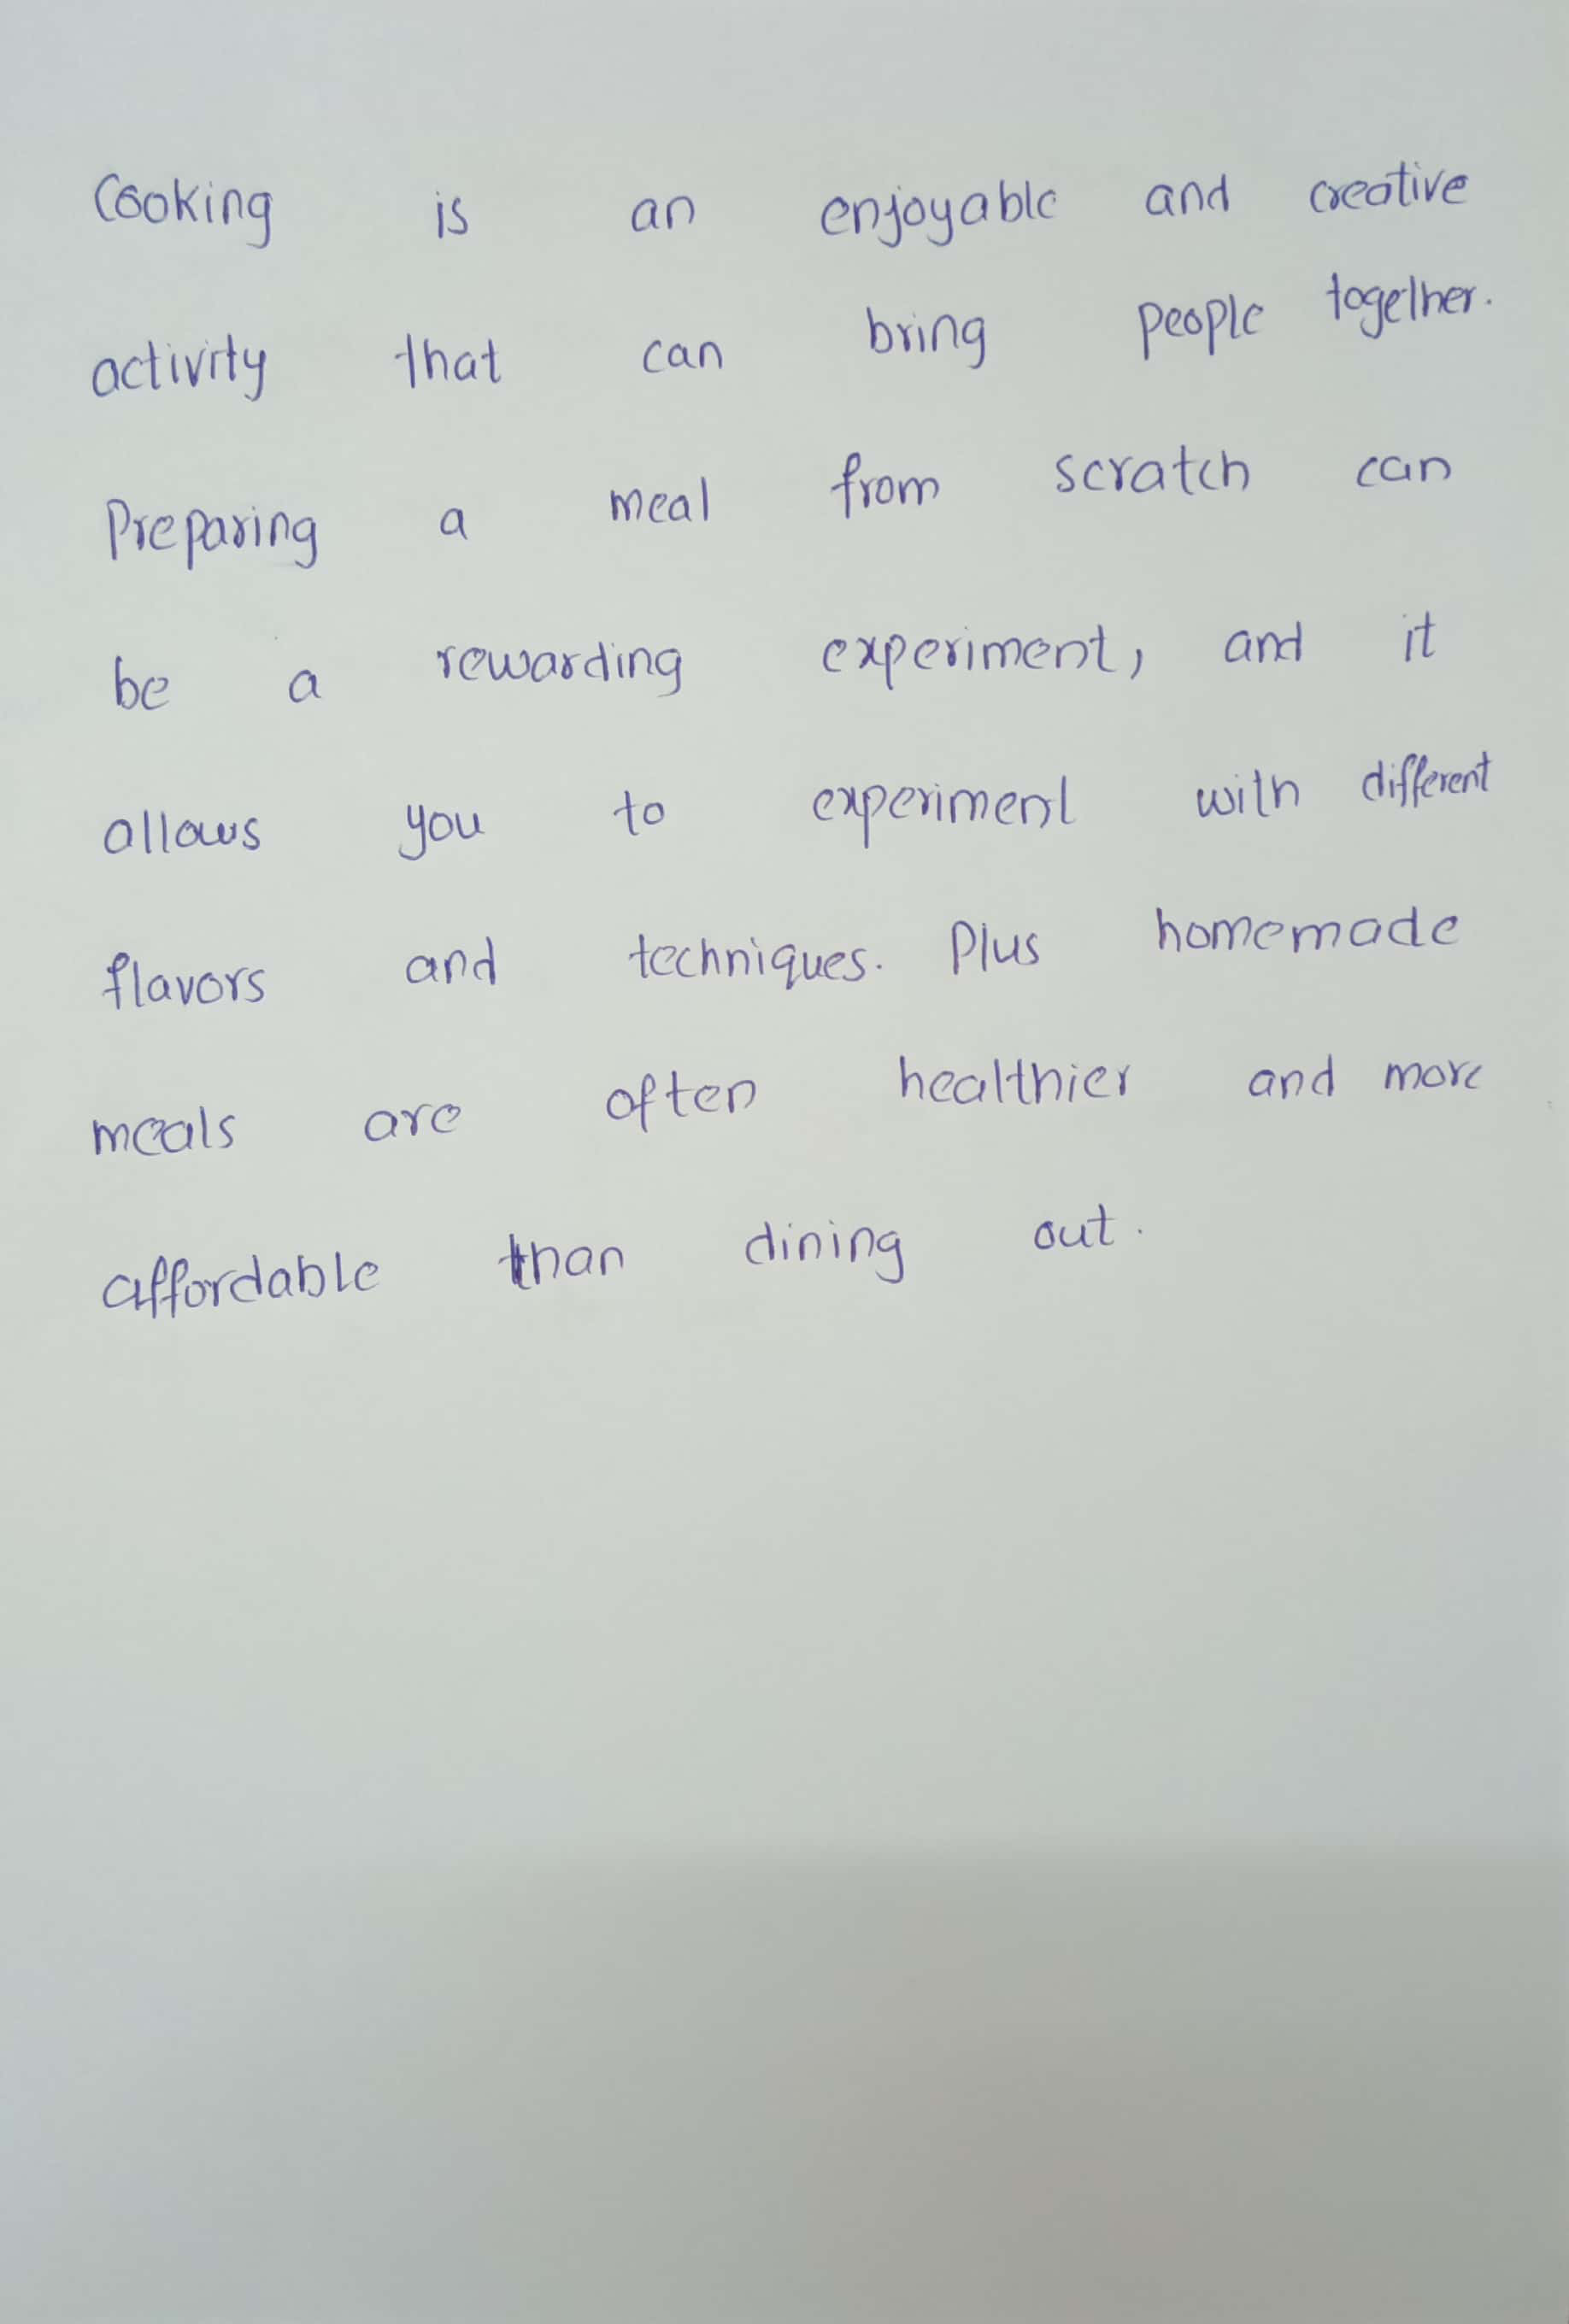 Cooking is an enjoyable and creative
activity that can bring people together.
Preparing a meal from scratch can
be a rewarding experiment, and it
allows you to experiment with different
flavors and techniques. Plus homemade
meals are often healthier and more
affordable than dining out.